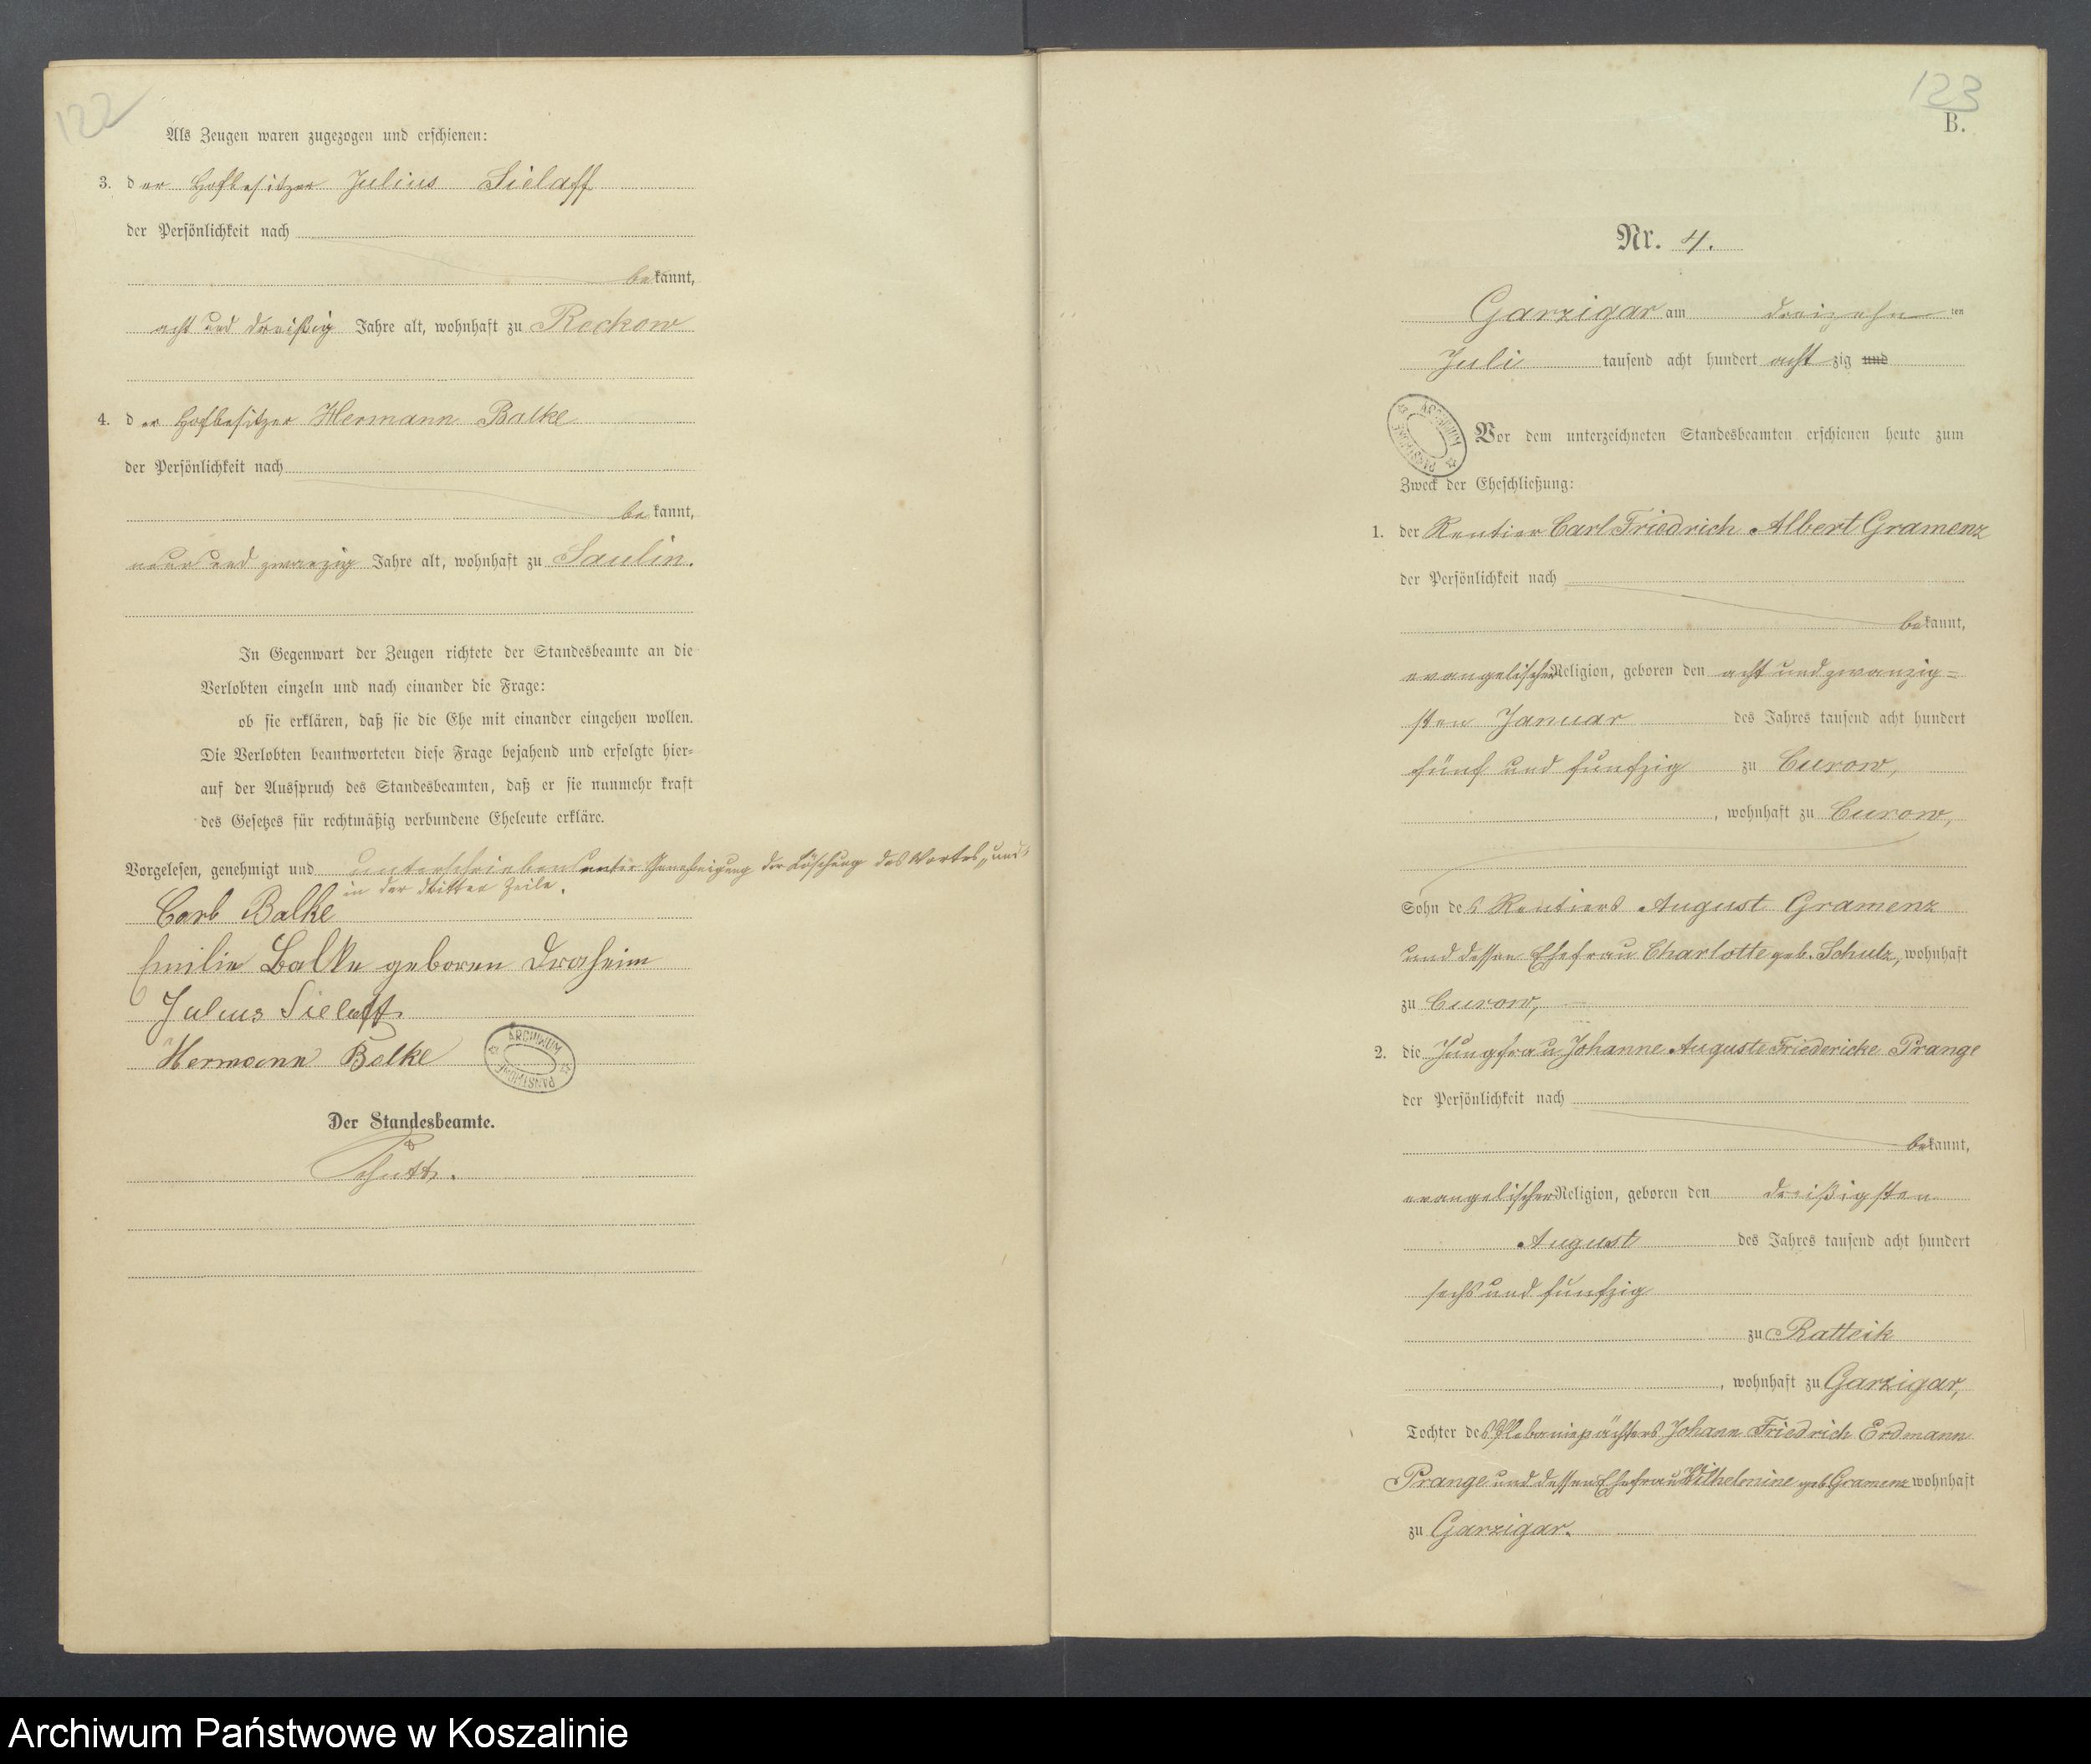 122
Als Zeugen waren zugezogen und erschienen:
3. der Hofbesitzer Julius Sielaff
der Persönlichkeit nach
bekannt,
acht und dreißig Jahre alt, wohnhaft zu Reckow
4. der Hofbesitzer Hermann Balke
der Persönlichkeit nach
bekannt,
neun und zwanzig Jahre alt, wohnhaft zu Saulin.
In Gegenwart der Zeugen richtete der Standesbeamte an die
Verlobten einzeln und nach einander die Frage:
ob sie erklären, daß sie die Ehe mit einander eingehen wollen.
Die Verlobten beantworteten diese Frage bejahend und erfolgte hier=
auf der Ausspruch des Standesbeamten, daß er sie nunmehr kraft
des Gesetzes für rechtmäßig verbundene Eheleute erkläre.
Vorgelesen, genehmigt und unterschrieben unter Genehmigung der Löschung des Wortes „und"
in der dritten Zeile.
Carl Balke
Emilie Balke geboren Draheim
Julius Sielaff
Hermann Balke
ARCHIWUM PAŃSTWOWE
Der Standesbeamte.
123
B.
Nr. 4.
Garzigar am dreizehn ten
Juli tausend acht hundert acht zig und
ARCHIWUM PAŃSTWOWE
Vor dem unterzeichneten Standesbeamten erschienen heute zum
Zweck der Eheschließung:
1. der Rentier Carl Friedrich Albert Gramenz
der Persönlichkeit nach
bekannt,
evangelischer Religion, geboren den acht und zwanzig=
sten Januar des Jahres tausend acht hundert
fünf und fünfzig zu Curow,
, wohnhaft zu Curow,
Sohn des Rentiers August Gramenz
und dessen Ehefrau Charlotte geb. Schulz, wohnhaft
zu Curow,
2. die Jungfrau Johanne Auguste Friedericke Prange
der Persönlichkeit nach
bekannt,
evangelischer Religion, geboren den dreißigsten
August des Jahres tausend acht hundert
sechs und fünfzig
zu Ratteik
, wohnhaft zu Garzigar,
Tochter des Plebaniepächters Johann Friedrich Erdmann
Prange und dessen Ehefrau Wilhelmine geb. Gramenz wohnhaft
zu Garzigar.
Archiwum Państwowe w Koszalinie